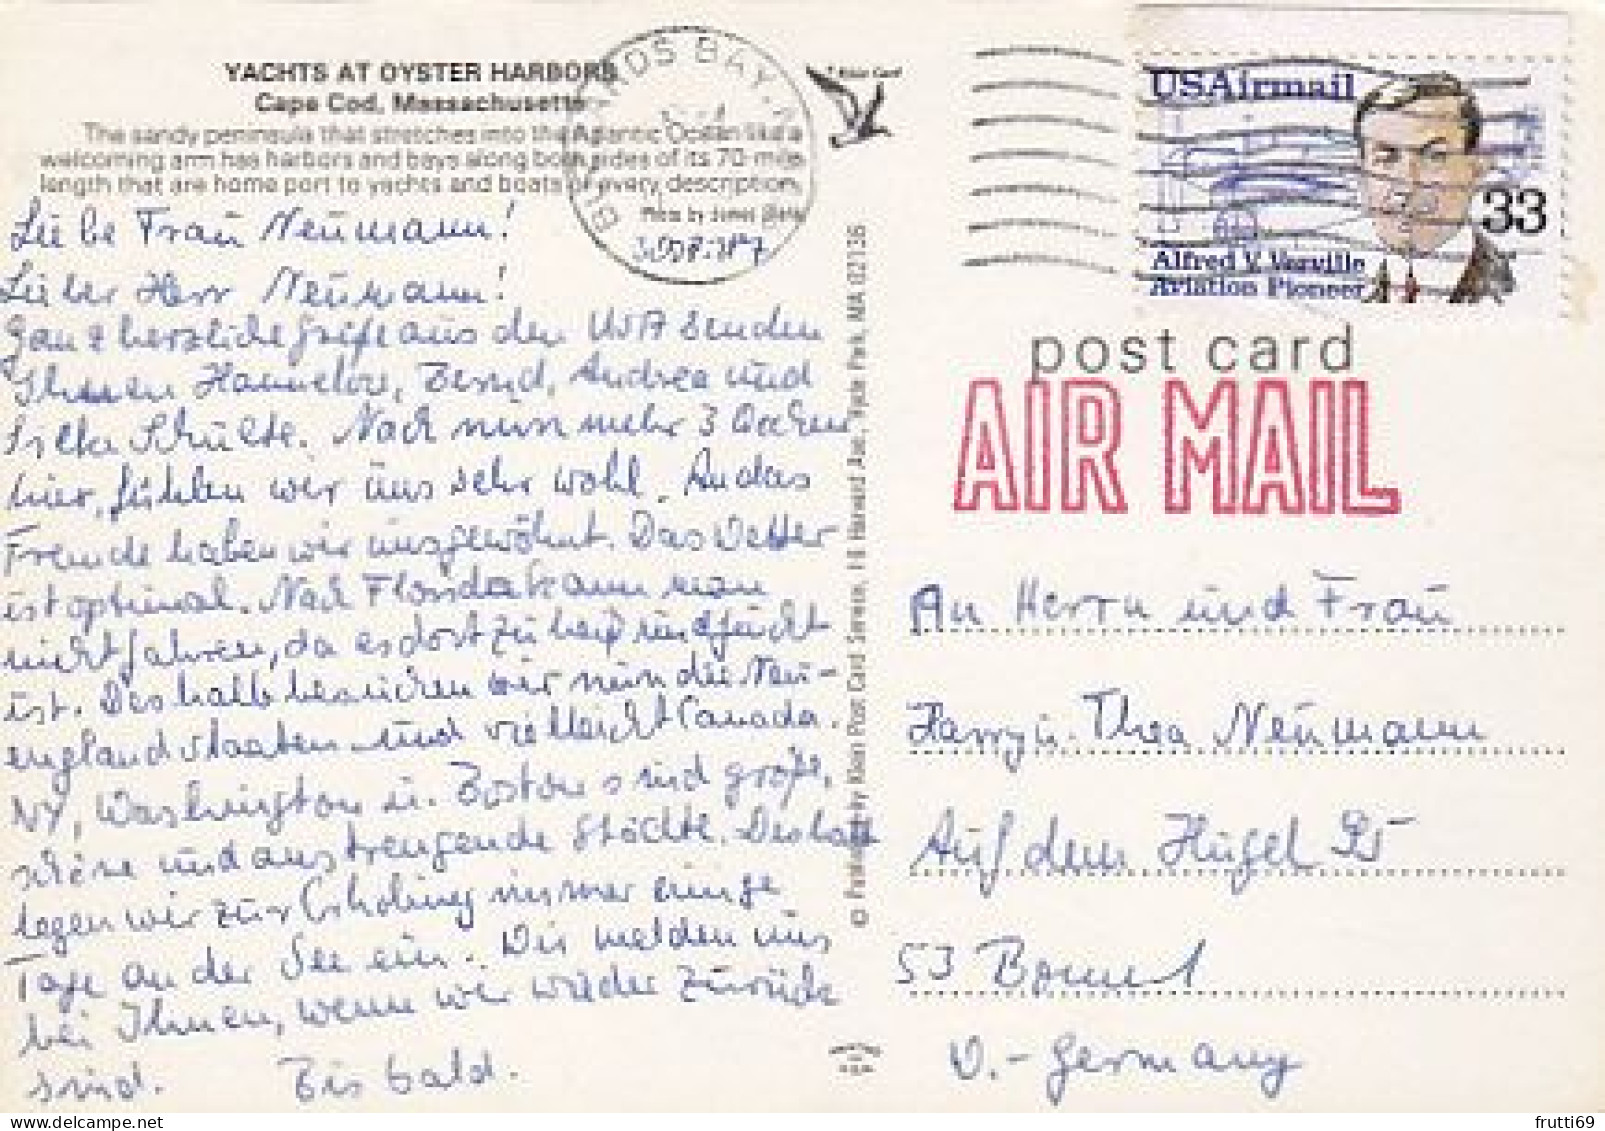 YACHTS AT OYSTER HARBORS
Cape Cod, Massachusetts
The sandy peninsula that stretches into the Atlantic Ocean like a
welcoming arm has harbors and bays along both sides of its 70-mile
length that are home port to yachts and boats of every description.
Photo by
BAY
Liebe Frau Neumann!
Lieber Herr Neumann!
Ganz herzliche Grüße aus den USA senden
Ihnen Hannelore, Bernd, Andrea und
Silke Schulte. Nach nunmehr 3 Wochen
hier, fühlen wir uns sehr wohl. An das
Fremde haben wir uns gewöhnt. Das Wetter
ist optimal. Nach Florida kann man
nicht fahren, da es dort zu heiß und feucht
ist. Deshalb besuchen wir nun die Neu-
englandstaaten und vielleicht Canada.
NY, Washington u. Boston sind große,
schöne und anstrengende Städte. Deshalb
legen wir zur Erholung immer einige
Tage an der See ein. Wir melden uns
bei Ihnen, wenn wir wieder zurück
sind. Bis bald.
© Published by Klein Post Card Service, Harvard Ave., Hyde Park, MA 02136
USAirmail
33
Alfred V. Verville
Aviation Pioneer
post card
AIR MAIL
An Herrn und Frau
Harry u. Thea Neumann
Auf dem Hügel 95
53 Bonn 1
W.-Germany
frutti69